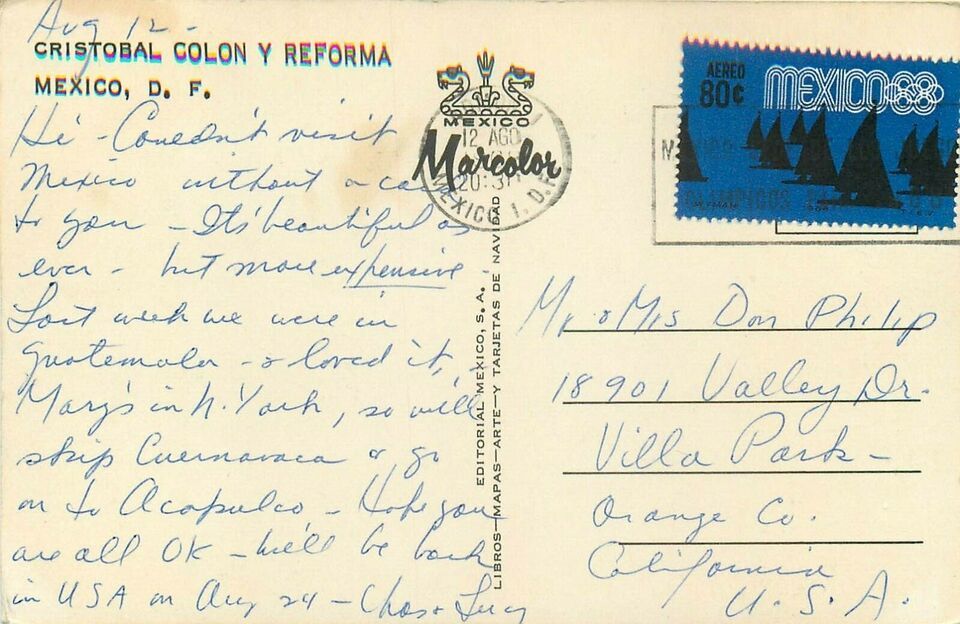 Aug 12 -
CRISTOBAL COLON Y REFORMA
MEXICO, D. F.
Hi - Couldn't visit
Mexico without a card
to you - It's beautiful as
ever - but more expensive -
Last week we were in
Guatemala - & loved it,
Mary's in N. York, so will
skip Cuernavaca & go
on to Acapulco - Hope you
are all OK - We'll be back
in USA on Aug 24 - Chas & Lucy
MEXICO
Marcolor
12 AGO
20:31
MEXICO 1, D.F.
EDITORIAL MEXICO, S. A.
LIBROS—MAPAS—ARTE—Y TARJETAS DE NAVIDAD
AEREO
80¢
MEXICO68
WYMAN
TIEV
Mr & Mrs Don Philip
18901 Valley Dr.
Villa Park -
Orange Co.
California
U. S. A.